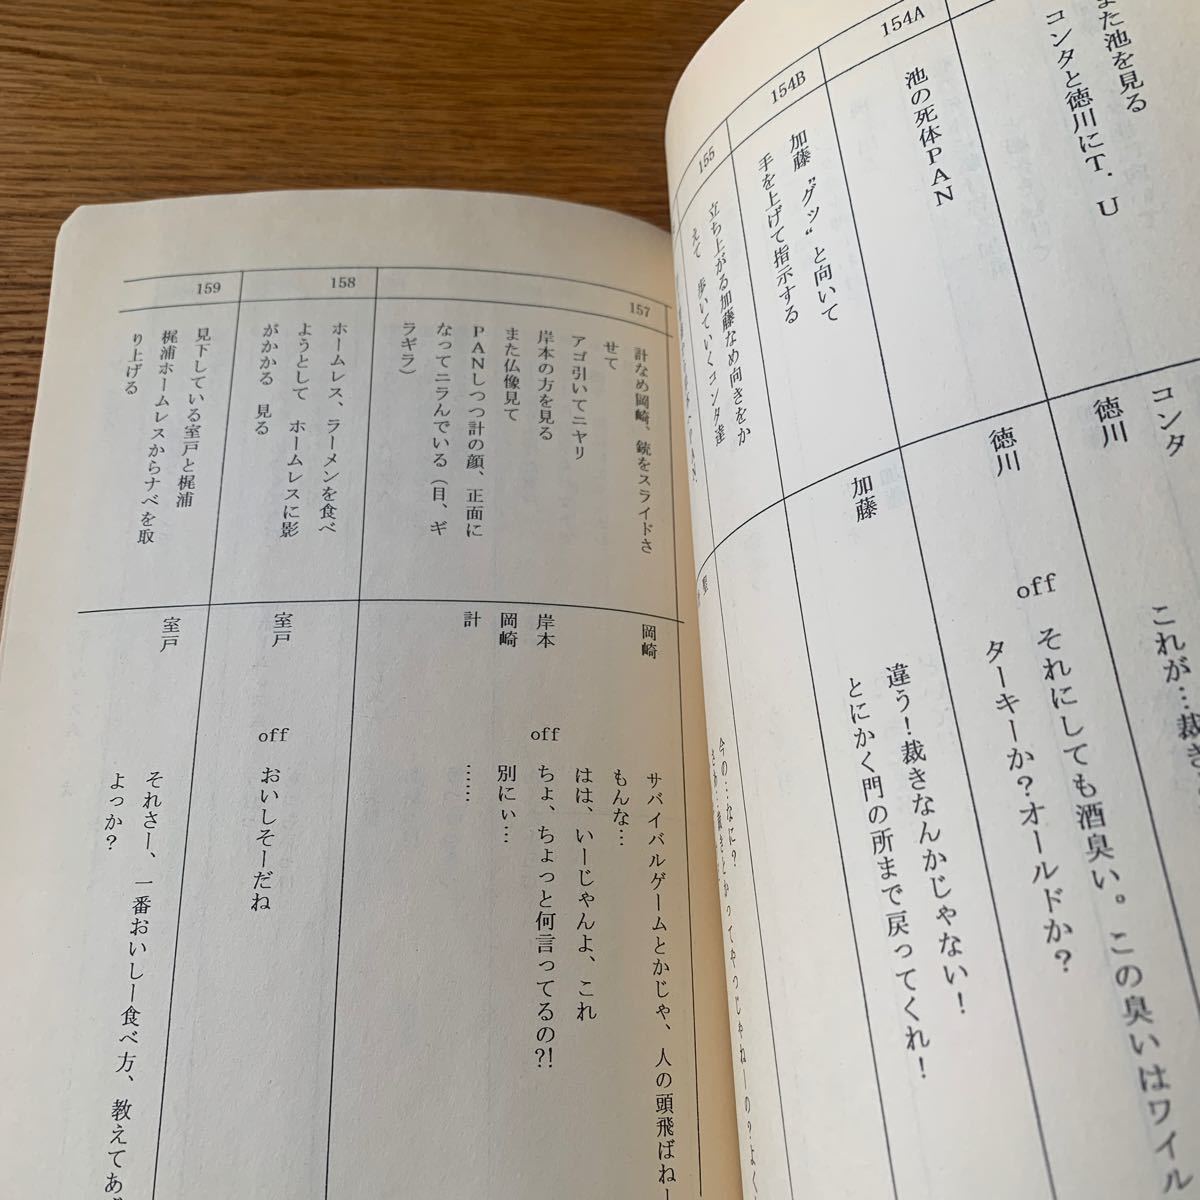 また池を見る
コンタと徳川にT.U
コンタ
これが…裁き
徳川
154A
池の死体PAN
徳川
off それにしても酒臭い。この臭いはワイル
ターキーか?オールドか?
154B
加藤〝グッ〟と向いて
手を上げて指示する
加藤
違う!裁きなんかじゃない!
とにかく門の所まで戻ってくれ!
155
立ち上がる加藤なめ向きをか
えて 歩いていくコンタ達
今の…なに?
157
計なめ岡崎、銃をスライドさ
せて
アゴ引いてニヤリ
岸本の方を見る
また仏像見て
PANしつつ計の顔、正面に
なってニラんでいる(目、ギ
ラギラ)
岡崎
サバイバルゲームとかじゃ、人の頭飛ばねー
もんな…
はは、いーじゃんよ、これ
岸本
off ちょ、ちょっと何言ってるの?!
岡崎
別にぃ…
計
……
158
ホームレス、ラーメンを食べ
ようとして ホームレスに影
がかかる 見る
室戸
off おいしそーだね
159
見下している室戸と梶浦
梶浦ホームレスからナベを取
り上げる
室戸
それさー、一番おいしー食べ方、教えてあげ
よっか?